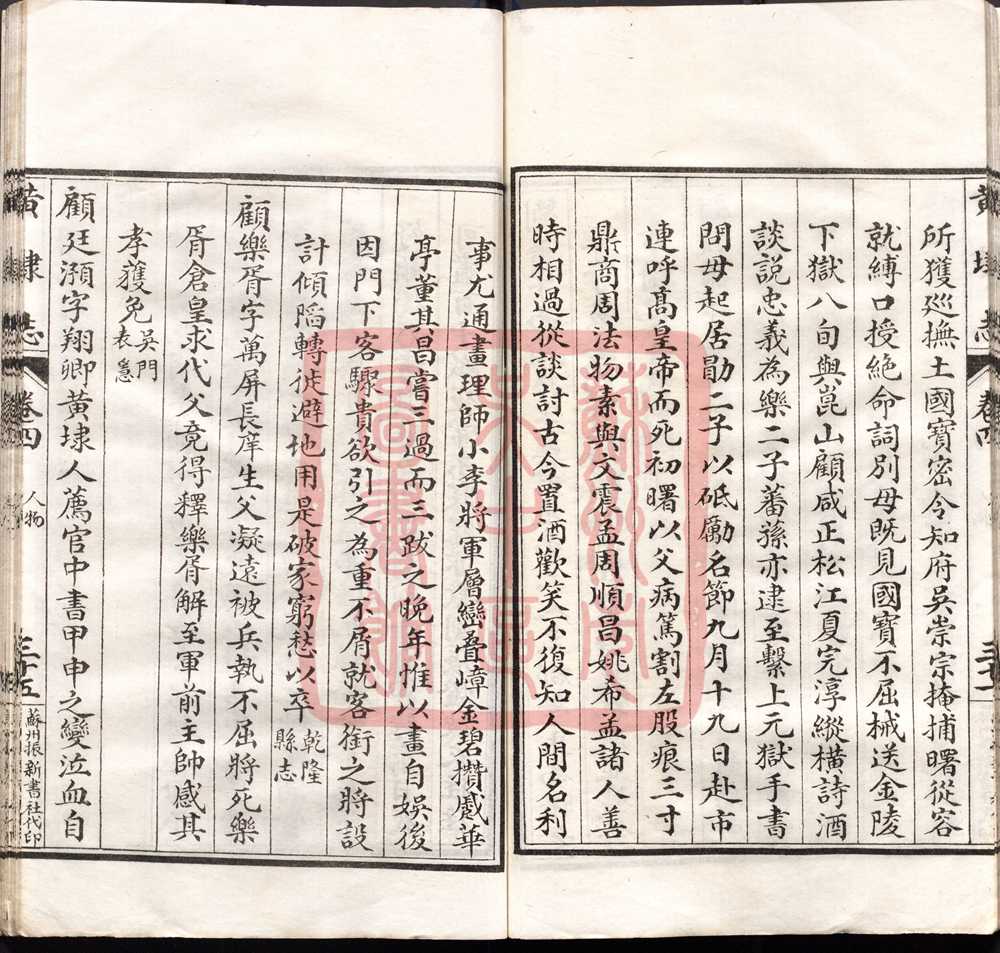 黃埭志
卷四
所獲巡撫土國寶密令知府吳崇宗掩捕曙從容
就縛口授絶命詞別母既見國寶不屈械送金陵
下獄八旬與崑山顧咸正松江夏完淳縱橫詩酒
談說忠義為樂二子蕃孫亦逮至繫上元獄手書
問母起居勖二子以砥勵名節九月十九日赴市
連呼高皇帝而死初曙以父病篤割左股痕三寸
鼎商周法物素與文震孟周順昌姚希孟諸人善
時相過從談討古今置酒歡笑不復知人間名利
事尤通畫理師小李將軍層巒疊嶂金碧攢蹙華
亭董其昌嘗三過而三跋之晚年惟以畫自娛後
因門下客驟貴欲引之為重不屑就客銜之將設
計傾陷轉徙避地用是破家窮愁以卒乾隆縣志
顧樂胥字萬屏長庠生父凝遠被兵執不屈將死樂
胥倉皇求代父竟得釋樂胥解至軍前主帥感其
孝獲免吳門表隱
顧廷灝字翔卿黃埭人薦官中書甲申之變泣血自
黃埭志
卷四
人物
三十五
蘇州振新書社代印